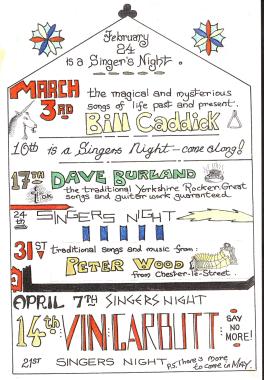 February
24
is a Singer's Night.
MARCH
3RD
the magical and mysterious
songs of life past and present.
Bill Caddick
10th is a Singers Night - come along!
17TH DAVE BURLAND
the traditional Yorkshire Rocker. Great
songs and guitar work guaranteed
24th SINGERS NIGHT
31ST traditional songs and music from:
PETER WOOD
from Chester-le-Street.
APRIL 7TH SINGERS NIGHT
14th: VIN GARBUTT:
SAY
NO
MORE!
21ST SINGERS NIGHT
P.S. There's more
to come in MAY.